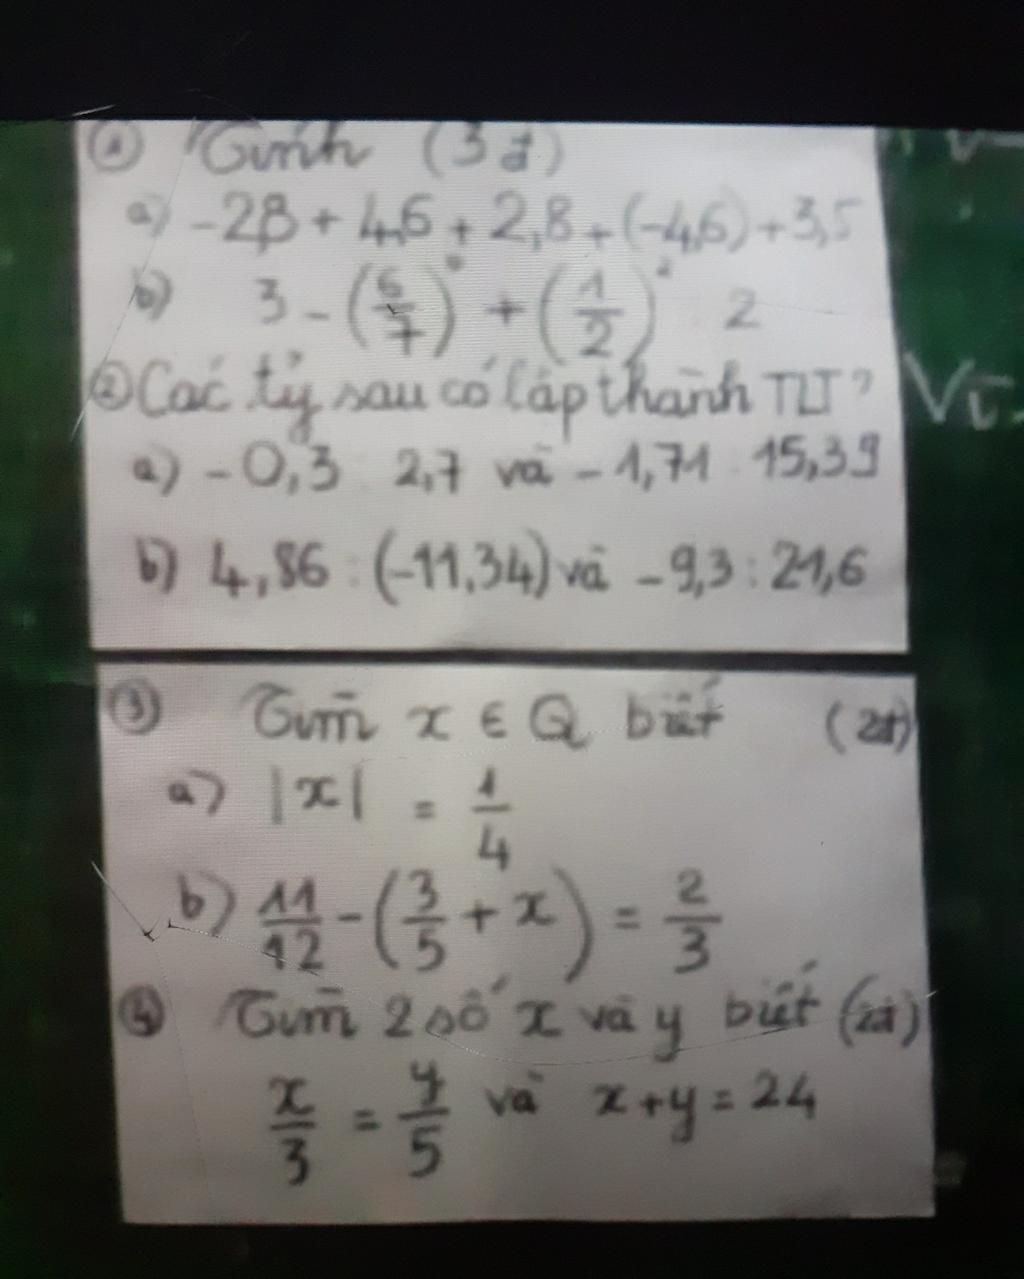 ① Tính (3đ)
a) -2,8 + 4,6 + 2,8 + (-4,6) + 3,5
b) 3 - (6/7)⁰ + (1/2)² 2
② Các tỷ sau có lập thành TLT?
a) -0,3 2,7 và -1,71 15,39
b) 4,86 : (-11,34) và -9,3 : 21,6
③ Tìm x ∈ Q biết (2đ)
a) |x| = 1/4
b) 11/12 - (3/5 + x) = 2/3
④ Tìm 2 số x và y biết (2đ)
x/3 = y/5 và x+y = 24